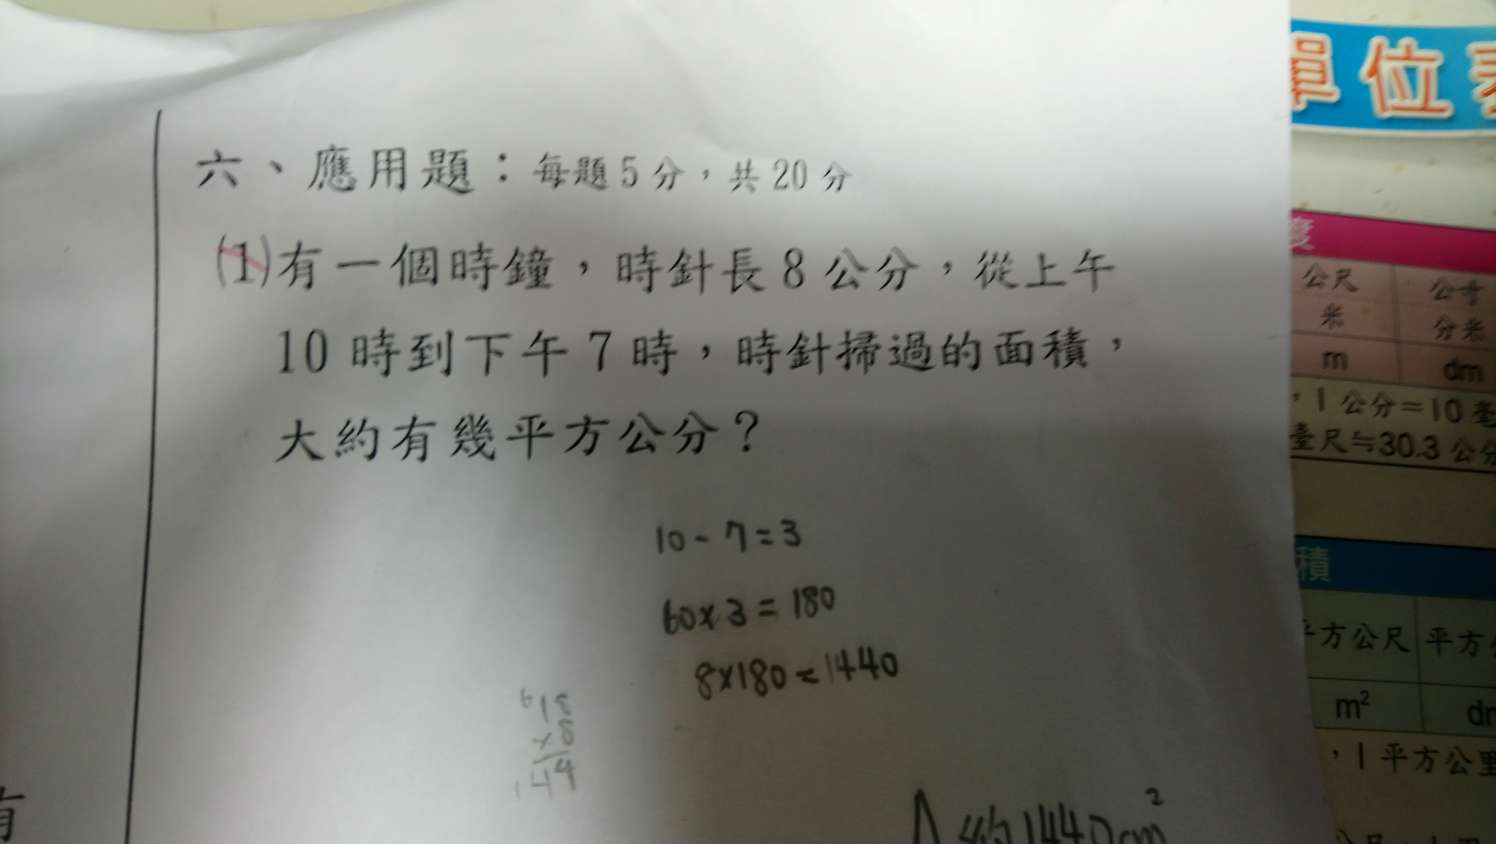 六、應用題：每題5分，共20分
(1)有一個時鐘，時針長8公分，從上午
10時到下午7時，時針掃過的面積，
大約有幾平方公分？
10-7=3
60×3=180
8×180=1440
6
18
×8
144
A 約1440cm²
有
單位表
度
公尺 公寸
米 分米
m dm
，1公分=10毫
臺尺≒30.3公分
積
平方公尺 平方
m² dm
，1平方公里